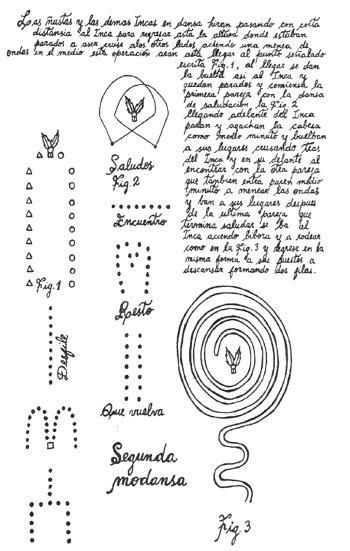 Las ñustas y las demas Incas en dansa firen pasando con corta
distansia al Inca para regresar asta la altura donde estaban
parados a aser cruse alos otros lados aciendo una menea de
ondas en el medio esta operación aran asta llegar al punto señalado
escrita Fig. 1, al llegar se dan
la buelta asi al Inca y
quedan parados y comiensa la
primera pareja con la dansa
de saludación la Fig. 2
llegando adelante del Inca
paran y agachan la cabesa
como medio minuto y buelban
a sus lugares crusando tras
del Inca y en su delante al
encontrar con la otra pareja
que tambien entra paren medio
minuto a menear las ondas
y ban a sus lugares despues
de la ultima pareja que
termina saludar se ba al
Inca aciendo bibora y a rodear
como en la Fig. 3 y regrese en la
misma forma a sus puestos a
descansar formando dos filas.
Saludos
Fig. 2
Encuentro
Fig. 1
Resto
Desfile
Que vuelva
Segunda
modansa
Fig. 3